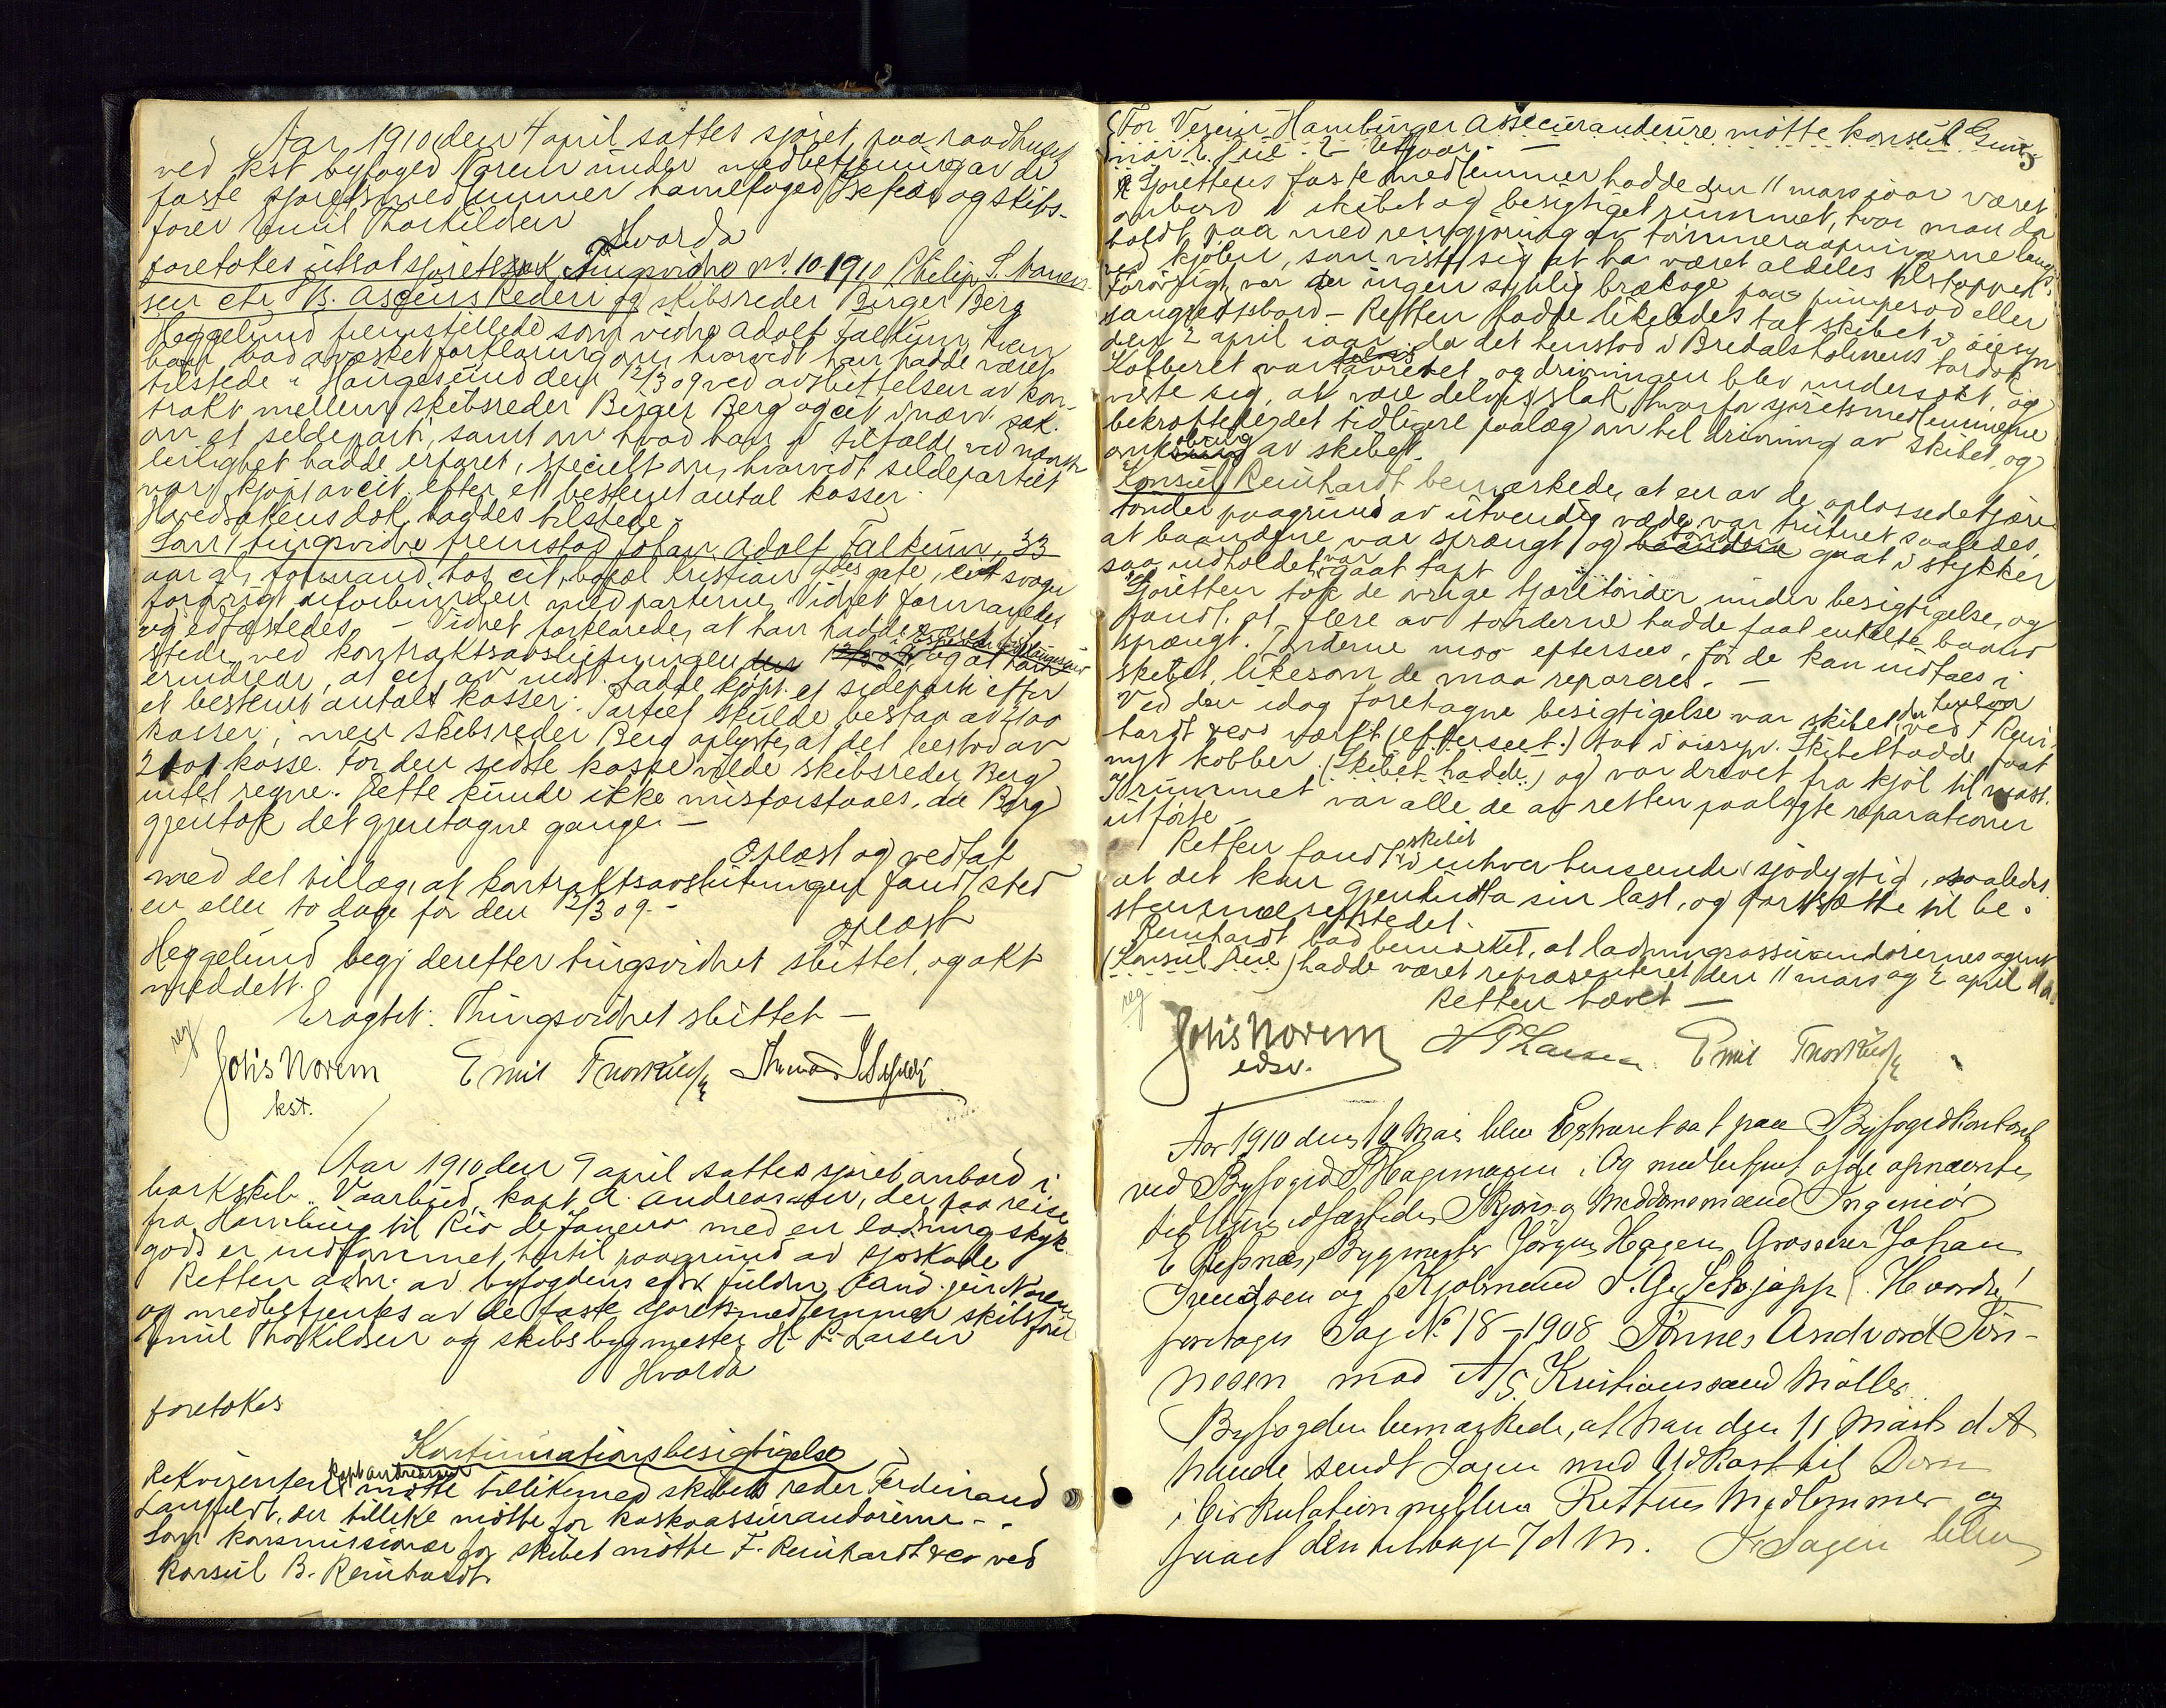 Aar 1910 den 4 april sattes sjøret paa raadhuset
ved kst byfoged Norem under medbetjening av de
faste sjøretsmedlemmer havnefoged Isefiær og skibs-
fører Emil Thorkildsen
Hvorda
foretokes utsat sjøretssak Tingsvidne no. 10-1910 Philip S. Hansen
sen ctr B. Aschens Rederi og skibsreder Birger Berg
Heggelund fremstillede som vidne Adolf Falkum, han
bad avæsket forklaring om, hvorvidt han hadde været
tilstede i Haugesund den 12/3 09 ved avsluttelsen av kon-
trakt mellem skibsreder Birger Berg og cit i nærv. sak.
om et sildeparti, samt om hvad han i tilfælde ved nævnte
leilighet hadde erfaret, specielt om, hvorvidt sildepartiet
var kjøpt av cit. efter et bestemt antal kasser.
Hovedsakens dok. havdes tilstede.
Som tingsvidne fremstod Johan Adolf Falkum, 33
aar gl, formand hos cit, bopæl Kristian 4des gate, cit svoger
forøvrigt uforbunden med parterne. Vidnet formanedes
og edfæstedes. – Vidnet forklarede, at han hadde været til-
stede ved kontraktsavslutningen i Haugesund og at han
erindrer, at cit av indst. hadde kjøpt et sildeparti efter
et bestemt antal kasser. Partiet skulde bestaa av 2100
kasser, men skibsreder Berg oplyste, at det bestod av
2101 kasse. For den sidste kasse vilde skibsreder Berg
intet regne. Dette kunde ikke misforstaaes, da Berg
gjentok det gjentagne ganger –
Oplæst og vedtat
med det tillæg, at kontraktsavslutningen fandt sted
en eller to dage før den 12/3 09. –
oplæst
Heggelund begj derefter tingsvidnet sluttet, og akt
meddelt.
Eragtet: Thingsvidnet sluttet –
reg
Johs Norem Emil Thorkildsen
kst.
Aar 1910 den 9 april sattes sjøret ombord i
barkskib "Vaarbud", kapt A. Andreassen, der paa reise
fra Hamburg til Rio de Janeiro med en ladning styk-
gods er indkommet hertil paagrund av sjøskade
Retten adm. av byfogdens edsv fuldm, cand. jur Norem
og medbetjentes av de faste sjøretsmedlemmer skibsfører
Emil Thorkildsen og skibsbygmester H. P. Larsen
Hvorda
foretokes
Kontinuationsbesigtigelse
Rekvirenten kapt Andreassen møtte tillikemed skibets reder Ferdinand
Langfeldt, der tillike møtte for kaskoassurandørerne –
Som kommissionær for skibet møtte F. Reinhardt & co ved
konsul B. Reinhardt.
3
For Verein Hamburger Assecuradeure møtte konsul Gun-
nar E. Juel.
Sjørettens faste medlemmer hadde den 11 mars iaar været
ombord i skibet og besigtiget rummet, hvor man da
holdt paa med rengjøring av tømmeraapningerne langs
ved kjølen, som viste sig at ha været aldeles tilstoppet.
Forøvrigt var der ingen synlig brækage paa pumpesod eller
slangretsbord – Retten hadde likeledes tat skibet i øiesyn
den 2 april iaar, da det henstod i Bredalsholmens tørdok
Kobberet var delvis avrevet, og drivningen blev undersøkt, og
viste sig, at være delvis slak, hvorfor sjøretsmedlemmerne
bekræftede det tidligere paalæg om hel drivning av skibet, og
omkobring av skibet.
Konsul Reinhardt bemærkede, at en av de oplossede tjære-
tønder paagrund av utvendig væde var trutnet saaledes,
at baandene var sprængt og tønden gaat i stykker
saa indholdet var gaat tapt
Sjøretten tok de øvrige tjæretønder under besigtigelse, og
fandt, at flere av tønderne hadde faat enkelte baand
sprængt. Tønderne maa eftersees, før de kan indtaes i
skibet, likesom de maa repareres. –
Ved den idag foretagne besigtigelse var skibet, der henlaa ved F Rein-
hardt & co's værft (efterseet) tat i øiesyn. Skibet hadde faat
nyt kobber (Skibet hadde) og var drevet fra kjøl til mast.
I rummet var alle de av retten paalagte reparationer
utførte –
Retten fandt skibet i enhver henseende sjødygtig, saaledes
at det kan gjenindta sin last, og fortsætte til be-
stemmelsesstedet. –
Reinhardt bad bemærket, at ladningsassurandørernes agent
(Konsul Juel) hadde været repræsenteret den 11 mars og 2 april d.a.
Retten hævet –
reg
Johs Norem H P Larsen Emil Thorkildsen
edsv.
Aar 1910 den 10 Mai blev Extraret sat paa Byfogedkontoret
ved Byfoged Hagemann. Og medbetjent af de opnævnte
tidligere edfæstede Skjøns og Meddomsmænd Ingeniør
E Refsnæs, Bygmester Jørgen Hagen, Grosserer Johan
Svendsen og Kjøbmand S. G. Schjøpp. Hvorda!
foretages Sag No 18–1908 Tønnes Andvord Tøn-
nesen mod A/S Kristianssand Møller.
Byfogden bemærkede, at han den 11 Marts d A
havde sendt Sagen med Udkast til Dom
i Cirkulation mellem Rettens Medlemmer og
faaet den tilbage 7 d M. Sagen blev